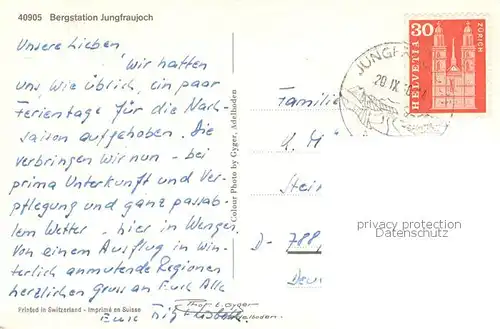 40905 Bergstation Jungfraujoch
Unsere Lieben,
Wir hatten
uns wie üblich, ein paar
Ferientage für die Nach-
saison aufgehoben. Die
verbringen wir nun - bei
prima Unterkunft und Ver-
pflegung und ganz passab-
lem Wetter - hier in Wengen.
Von einem Ausflug in win-
terlich anmutende Regionen
herzlichen Gruss an Euch Alle
Eure
Printed in Switzerland - Imprimé en Suisse
Colour Photo by Gyger, Adelboden
Phot. E. Gyger
Adelboden
JUNGFR
20.IX.
HELVETIA
30
ZÜRICH
Familie
K. M
Stei
D- 788
Deu
privacy protection
Datenschutz